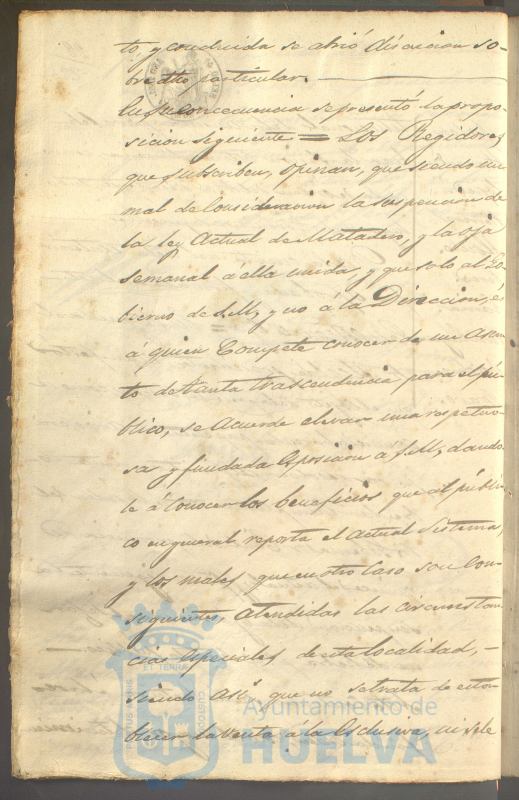 to, y concluida se abrió discusion so-
bre dtto particular.
En su concecuencia se presentó la propo-
sicion siguiente = Los Regidores
que subscriben, opinan, que siendo un
mal de Consideracion la suspencion de
la ley Actual de Matadero, y la oja
semanal á ella unida, y que solo al Go-
bierno de S.M, y no á la Direccion, és
á quien Compete conocer de un Asun-
to de tanta trascendencia para el pú-
blico, se Acuerde elevar una respetuo-
sa y fundada Esposicion a S.M, dando
le á Conocer los beneficios que al públi-
co en general reporta el Actual Sistema,
y los males que en otro Caso son Con-
siguientes, Atendidas las circunstan
cias especiales de esta localidad, -
siendo Asi, que no se trata de esta-
blecer la Venta á la Esclusiva, ni se le
PORTUS MARIS
ET TERRAE
CUSTODIA
Ayuntamiento de
HUELVA